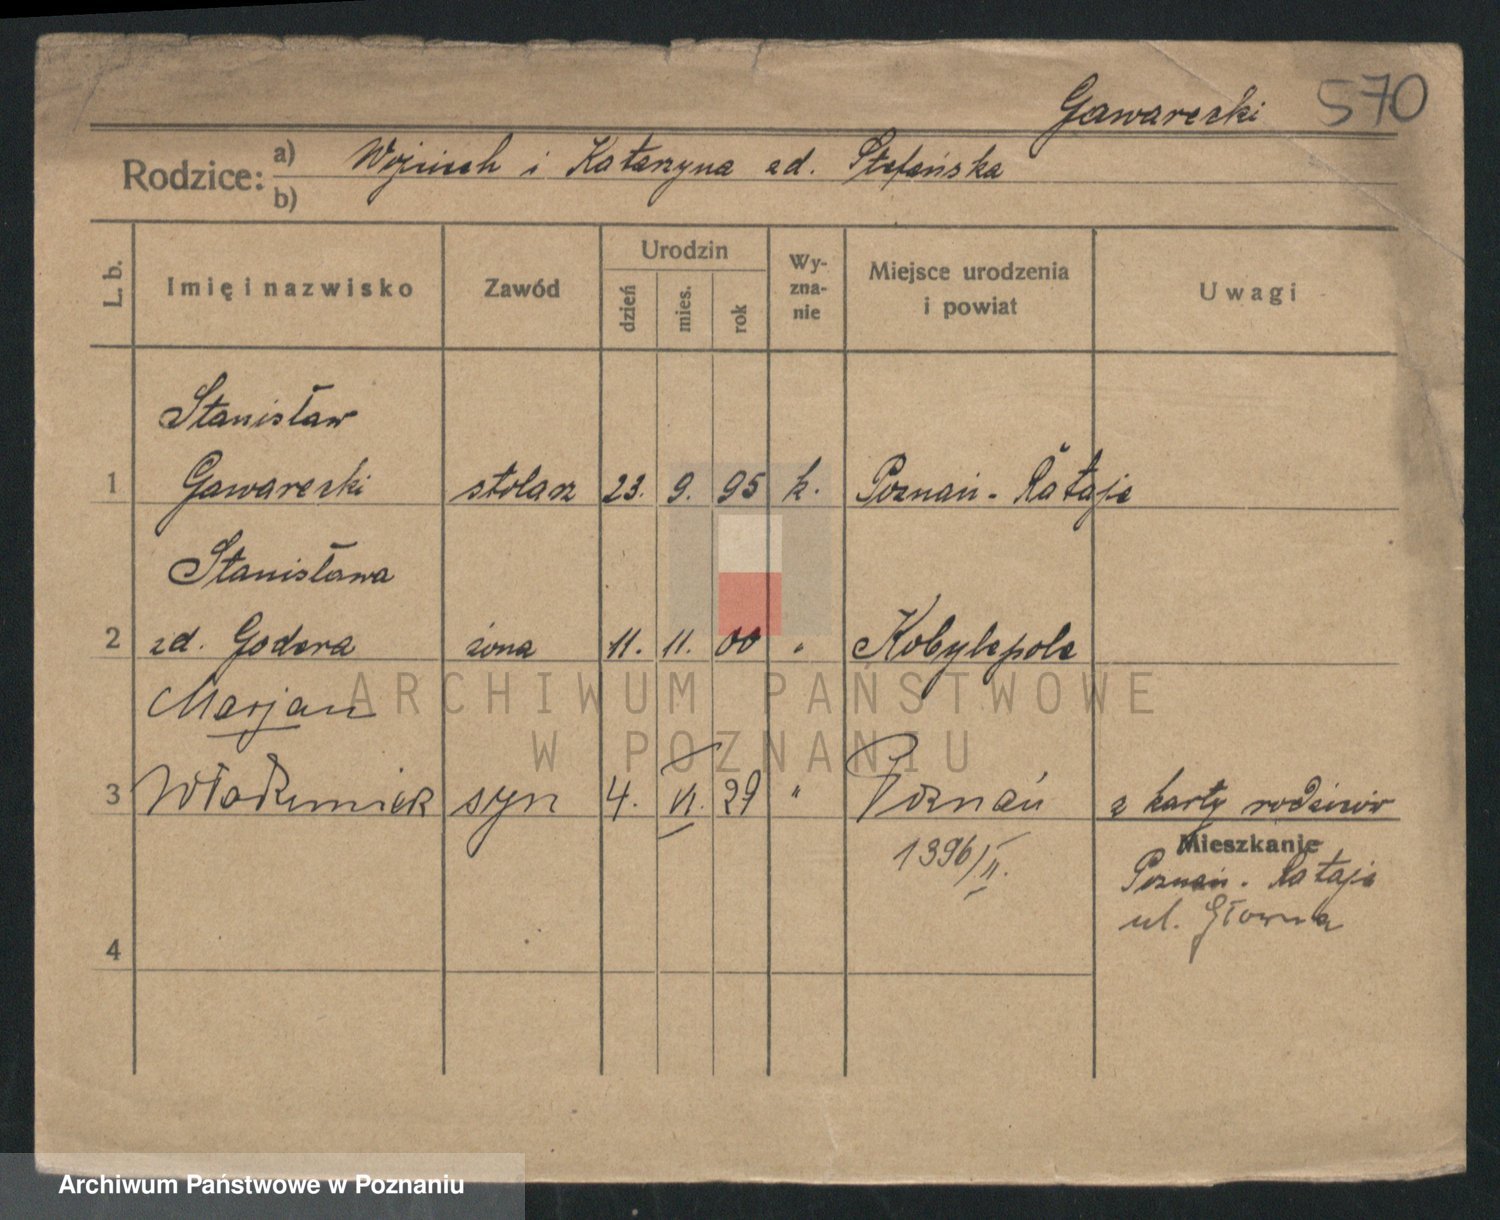 Gawarecki 570
Rodzice: a) Wojciech i Katarzyna zd. Stefańska
b)
L. b. Imię i nazwisko Zawód Urodzin dzień mies. rok Wy-zna-nie Miejsce urodzenia i powiat Uwagi
Stanisław
1 Gawarecki stolarz 23. 9. 95 k. Poznań - Rataje
Stanisława
2 zd. Godera żona 11. 11. 00 " Kobylepole
Marjan
3 Włodzimierz syn 4. VI. 29 " Poznań z karty rodziców
1396/II.
Mieszkanie
Poznań - Rataje
ul. Główna
4
ARCHIWUM PAŃSTWOWE
W POZNANIU
Archiwum Państwowe w Poznaniu